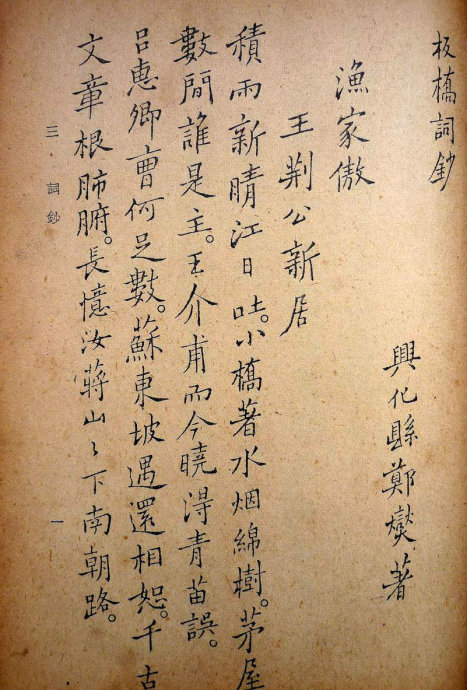 板橋詞鈔
興化縣鄭燮著
漁家傲
王荆公新居
積雨新晴江日吐。小橋著水烟綿樹。茅屋
數間誰是主。王介甫而今曉淂青苗誤。
吕惠卿曹何足數。蘇東坡遇還相恕。千古
文章根肺腑。長憶汝蔣山〻下南朝路。
三·詞鈔
一